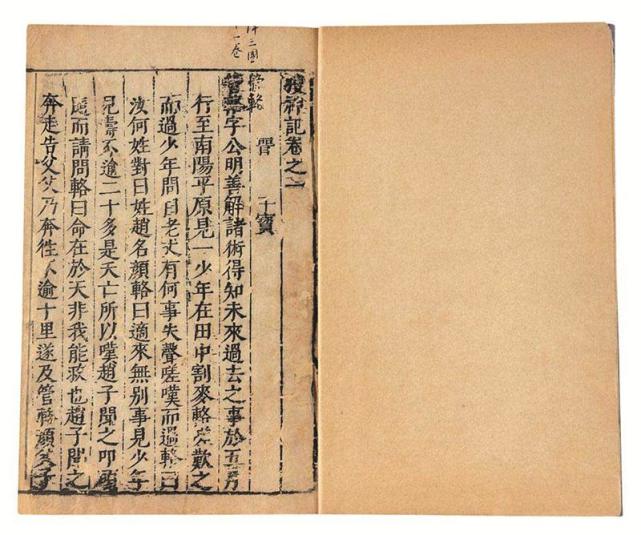 搜神記卷之一
晉 干寶
字公明善解諸術得知未來過去之事於五月
行至南陽平原見一少年在田中割麥輅嗟歎之
而過少年問曰老丈有何事失聲嗟嘆而過輅曰
汝何姓對曰姓趙名顏輅曰適來無別事見少年
兄壽不逾二十多是夭亡所以嘆趙子聞之叩
而請問輅曰命在於天非我能救也趙子聞之
奔走告父父乃奔徃不逾十里遂及管輅顏父子